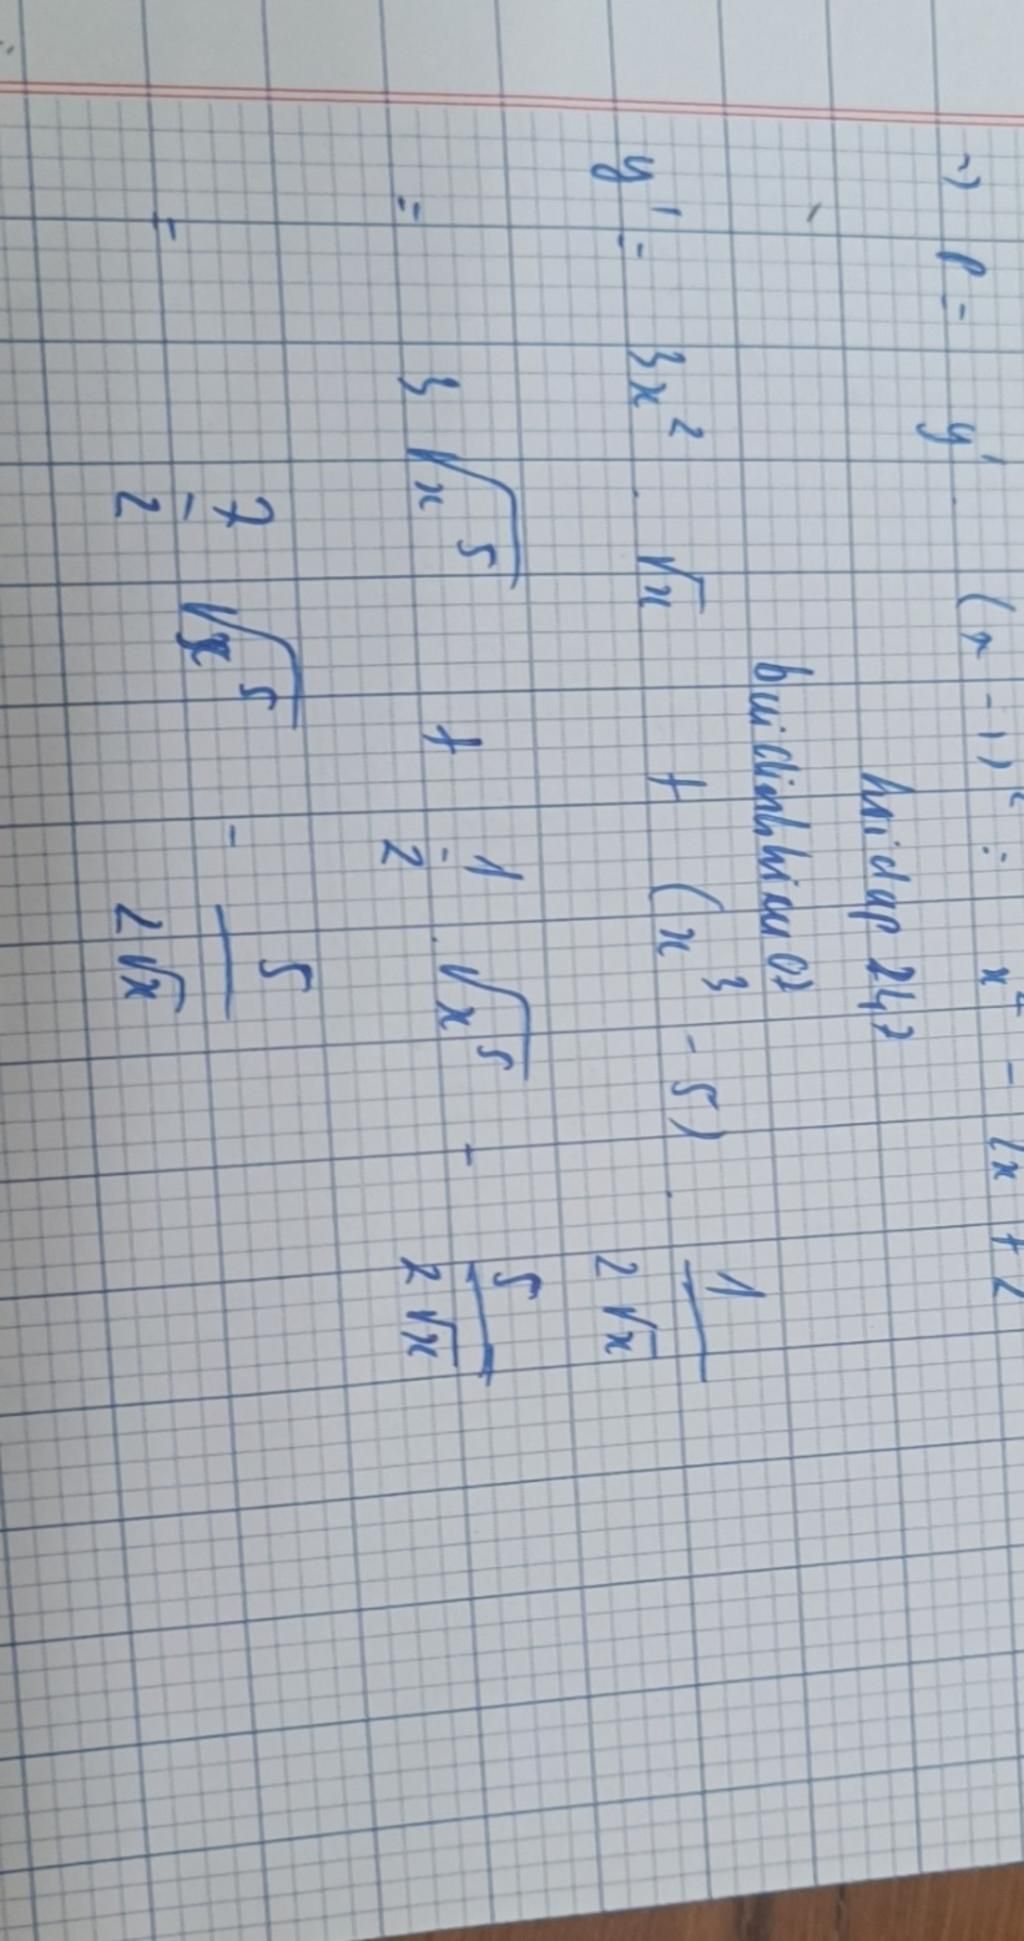 P = y' . (x - 1)² = x⁴ - 2x + 2
hoidap247
buidinhhieu07
y' = 3x² . √x + (x³ - 5) . 1/(2√x)
= 3√x⁵ + 1/2 . √x⁵ - 5/(2√x)
= 7/2 √x⁵ - 5/(2√x)